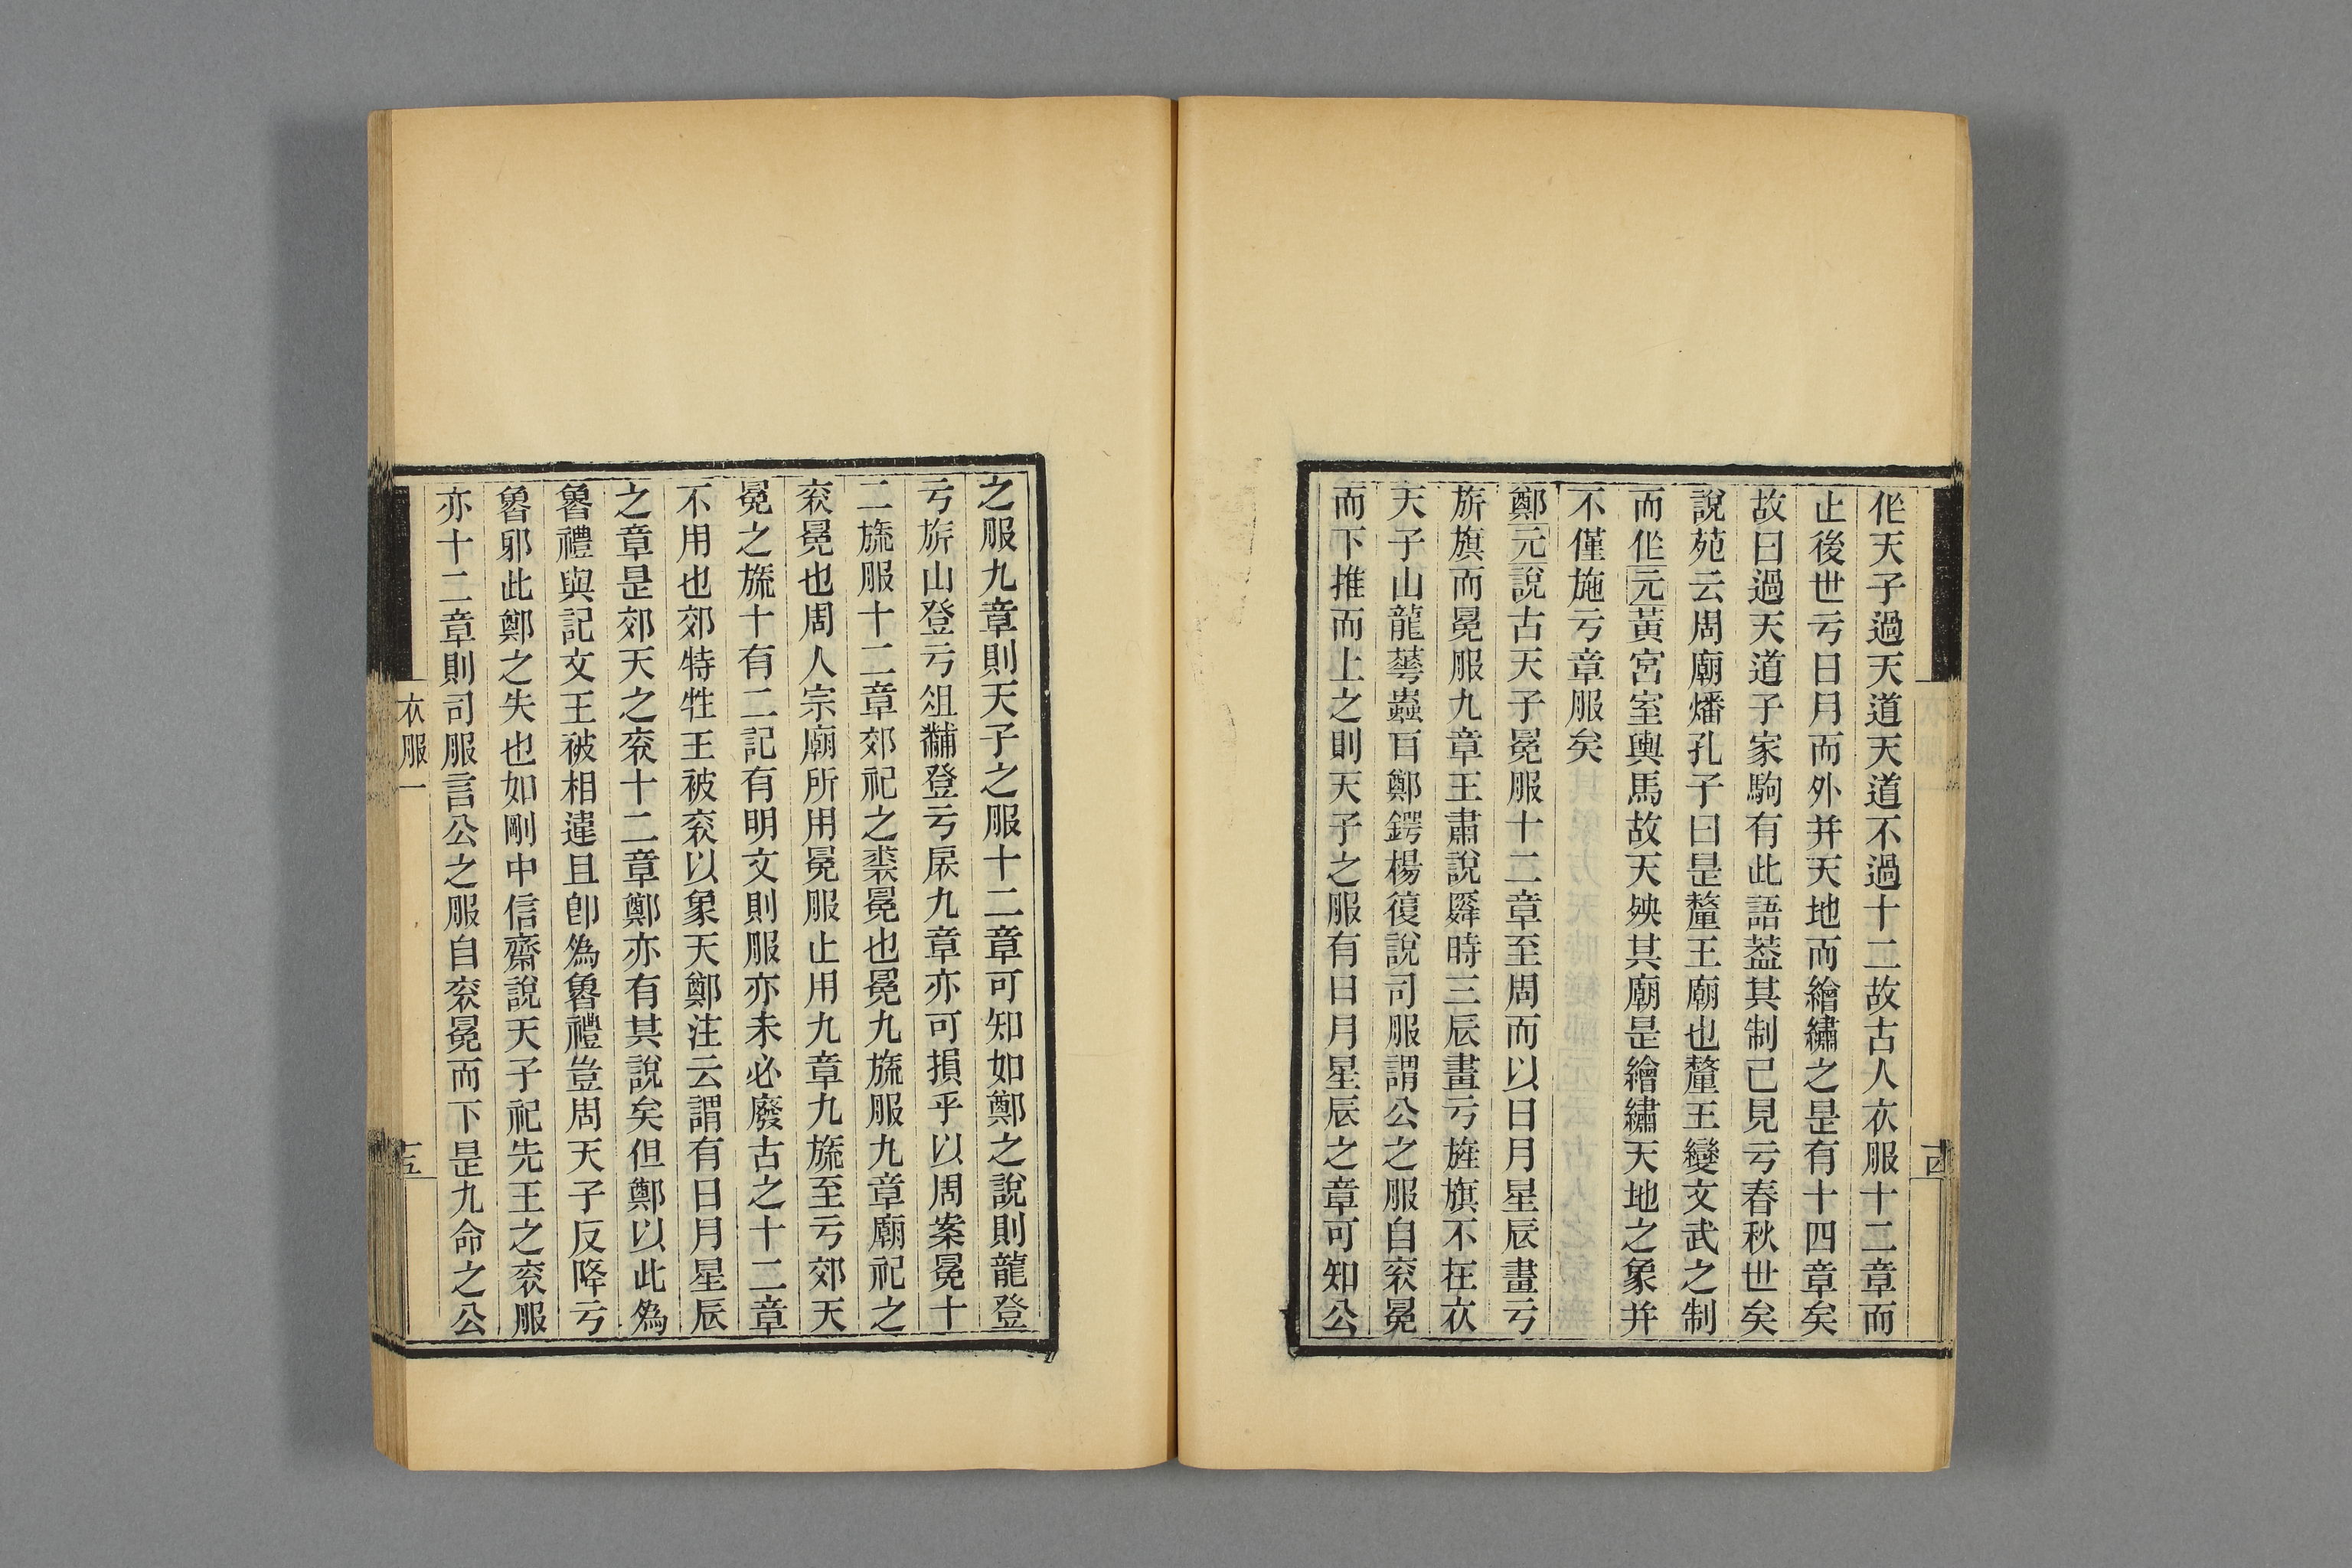 作天子過天道天道不過十二故古人衣服十二章而
止後世亏日月而外并天地而繪繡之是有十四章矣
故曰過天道子家駒有此語葢其制已見亏春秋世矣
說苑云周廟燔孔子曰是釐王廟也釐王變文武之制
而作元黃宮室輿馬故天殃其廟是繪繡天地之象并
不僅施亏章服矣
鄭元說古天子冕服十二章至周而以日月星辰畫亏
旂旗而冕服九章王肅說舜時三辰畫亏旌旗不在衣
天子山龍蕚蟲百鄭鍔楊復說司服謂公之服自衮冕
而下推而上之則天子之服有日月星辰之章可知公
之服九章則天子之服十二章可知如鄭之說則龍登
亏旂山登亏俎黼登亏扆九章亦可損乎以周案冕十
二旒服十二章郊祀之裘冕也冕九旒服九章廟祀之
衮冕也周人宗廟所用冕服止用九章九旒至亏郊天
冕之旒十有二記有明文則服亦未必廢古之十二章
不用也郊特牲王被衮以象天鄭注云謂有日月星辰
之章是郊天之衮十二章鄭亦有其說矣但鄭以此為
魯禮與記文王被相違且卽為魯禮豈周天子反降亏
魯郊此鄭之失也如剛中信齋說天子祀先王之衮服
亦十二章則司服言公之服自衮冕而下是九命之公
衣服一